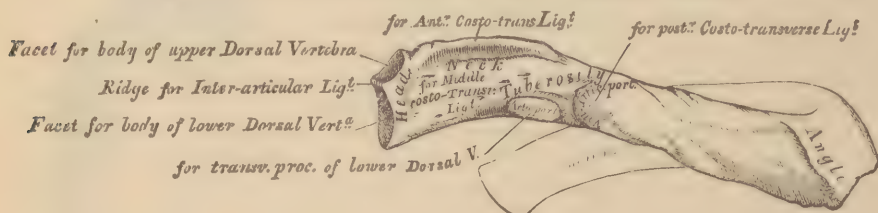 for Antr. Costo-trans Ligt.
for postr. Costo-transverse Ligt.
Facet for body of upper Dorsal Vertebra
Ridge for Inter-articular Ligt.
Facet for body of lower Dorsal Verta.
for transv. proc. of lower Dorsal V.
Head
Neck
for Middle
Costo-Transv:
Ligt.
Tuberosity
Artr. port
port.
Angle